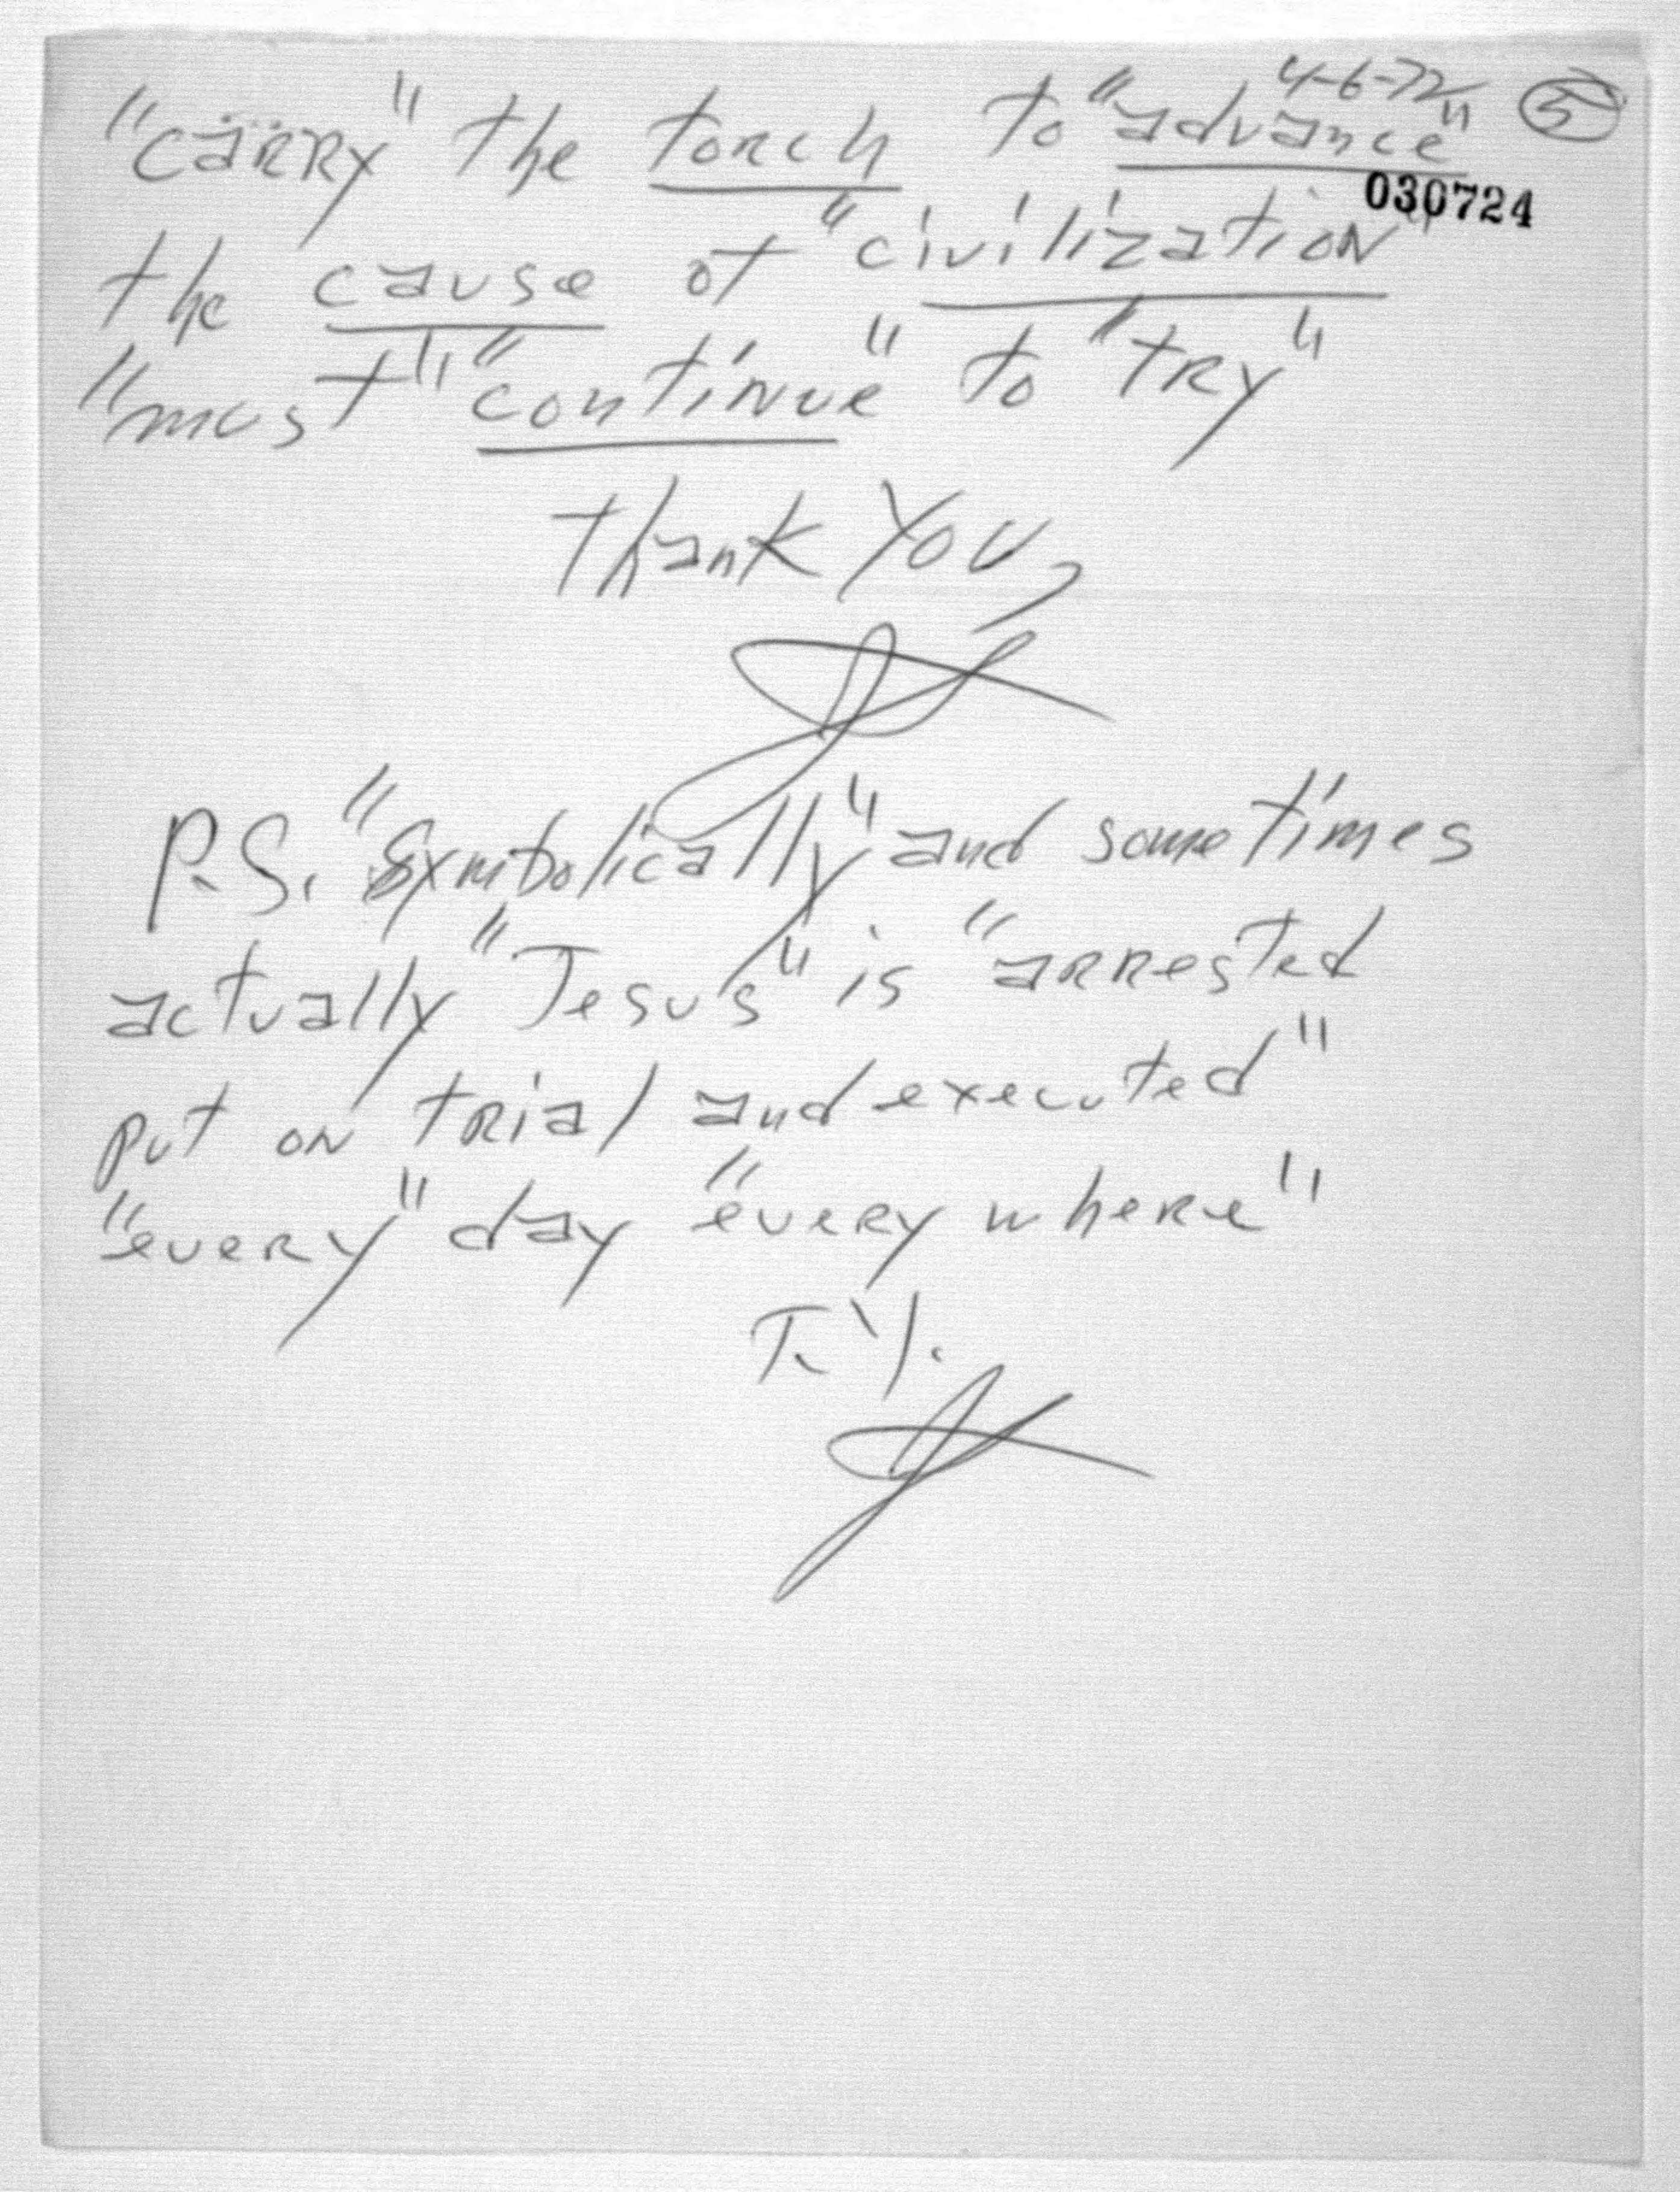 4-6-72 5
"carry" the torch to "advance"
030724
the cause of "civilization"
"must" "continue" to "try"
Thank You,
P.S. "Symbolically" and sometimes
actually "Jesus" is "arrested
put on trial and executed"
"every" day "every where"
T.Y.